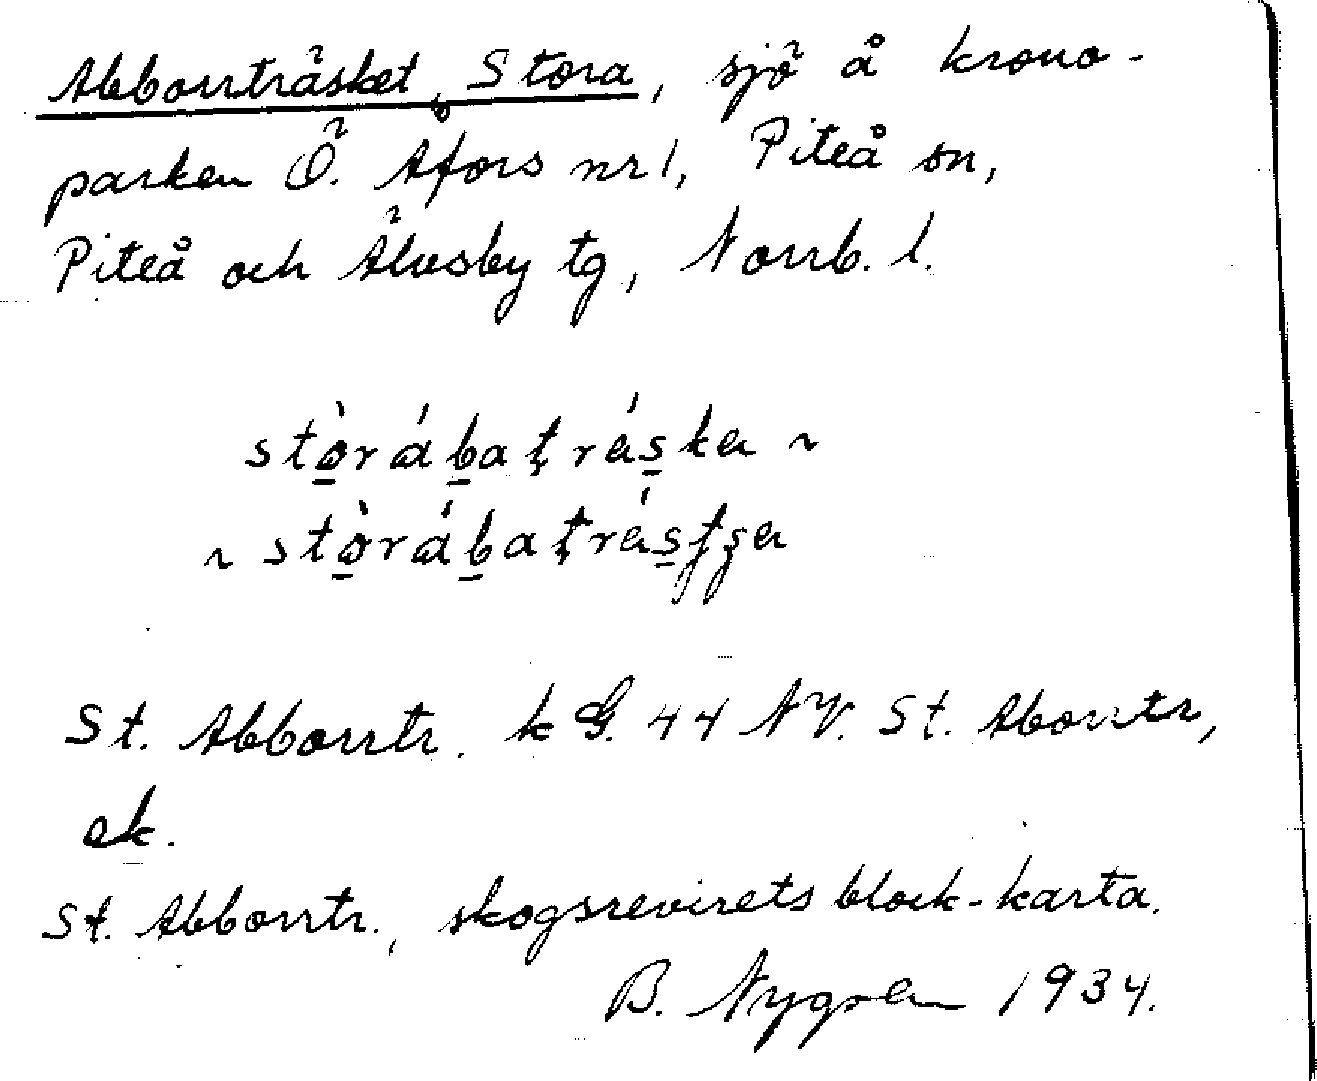 Abborrträsket, Stora, sjö å krono-
parken Ö. Åfors nr 1, Piteå sn,
Piteå och Älvsby tg, Norrb. l.
stòrábaträ́ska ~
~ stòrábaträ́stʃa
St. Abborrtr. k G. 44 NV. St. Aborrtr,
ek.
St. Abborrtr., skogsrevirets block-karta.
B. Nygren 1934.